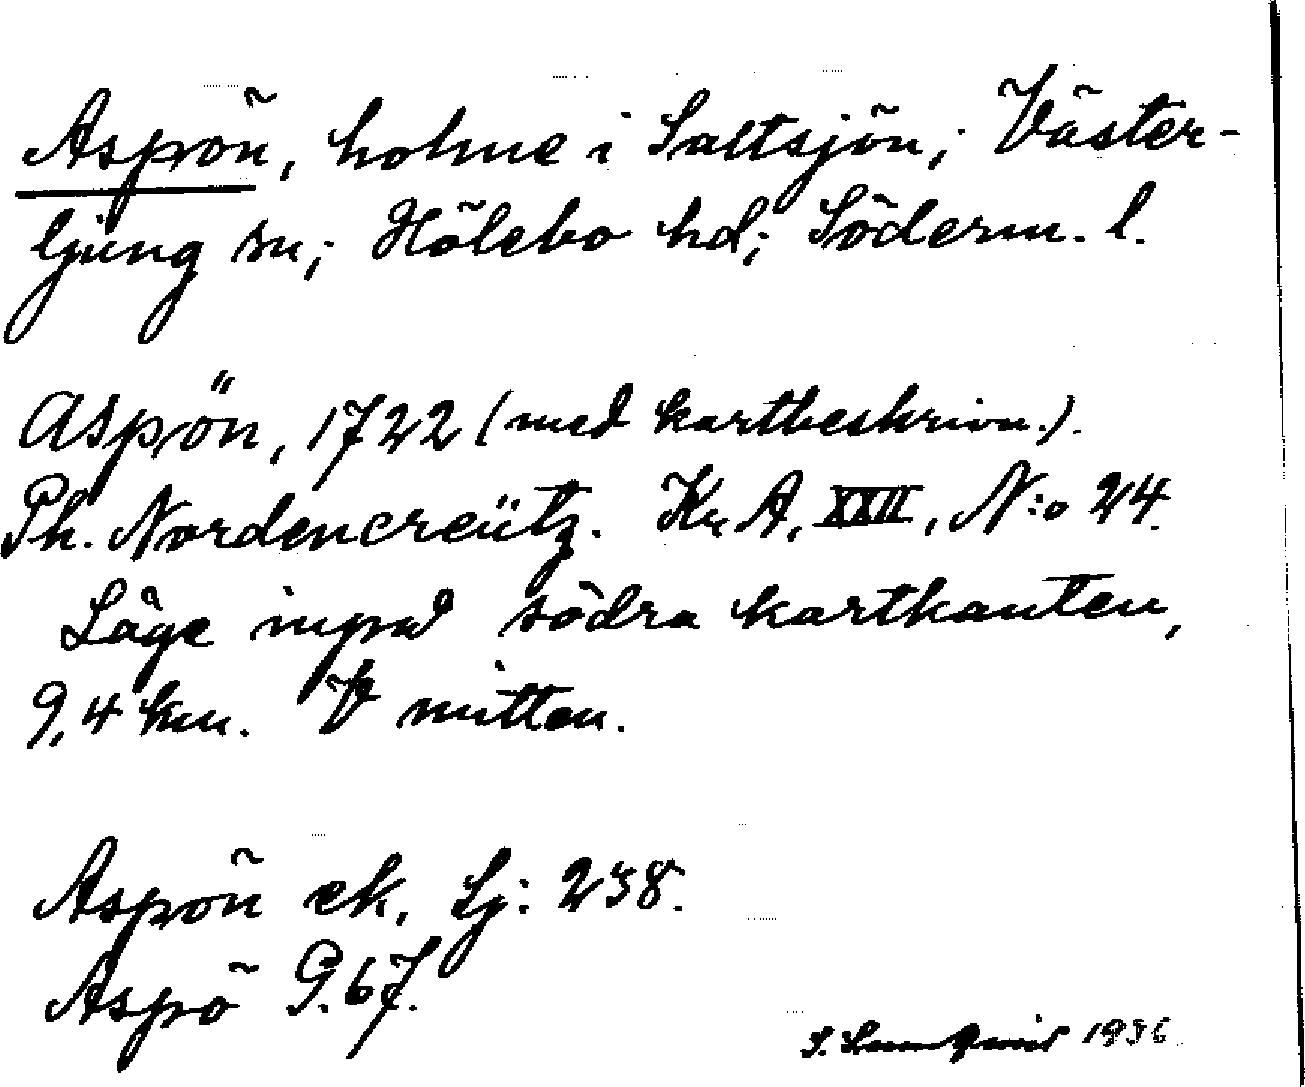 Aspön, holme i Saltsjön; Väster-
ljung sn; Hölebo hd; Söderm. l.
Aspön, 1722 (med kartbeskrivn.).
Ph. Nordencreütz. Kr. A, XXII, N:o 24.
Läge invid södra kartkanten,
9,4 km. V mitten.
Aspön ek. Lj: 238.
Aspö G. 67.
S. 1936